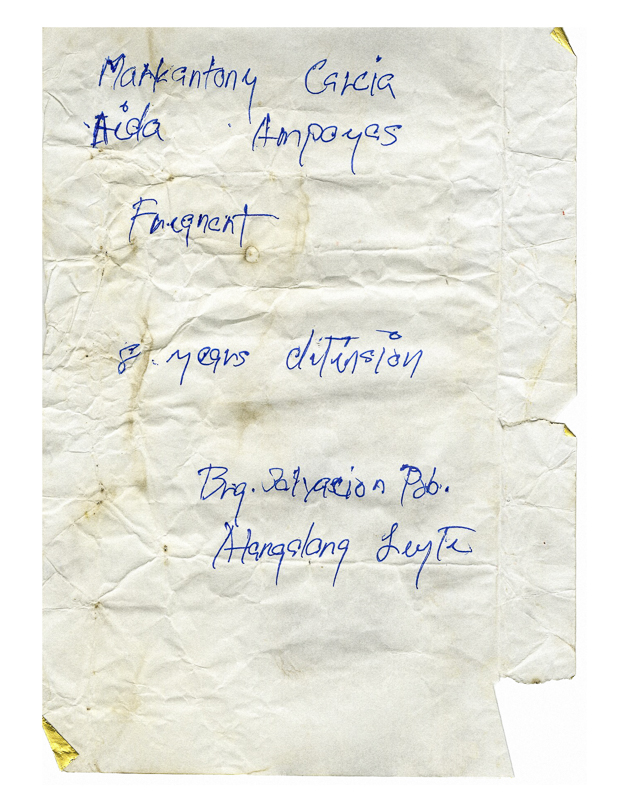 Markantony Garcia
Aida Ampayas
Fregnent
8. years ditinsion
Brg. Salvacion Pob.
Alangalang Leyte